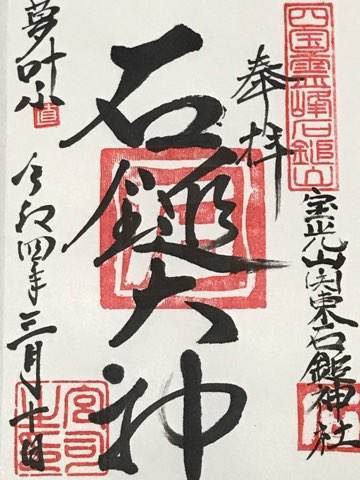 四国霊峰石鎚山
奉拝
宝光山関東石鎚神社
石鎚大神
夢叶小
直
令和四年三月十日
宮司